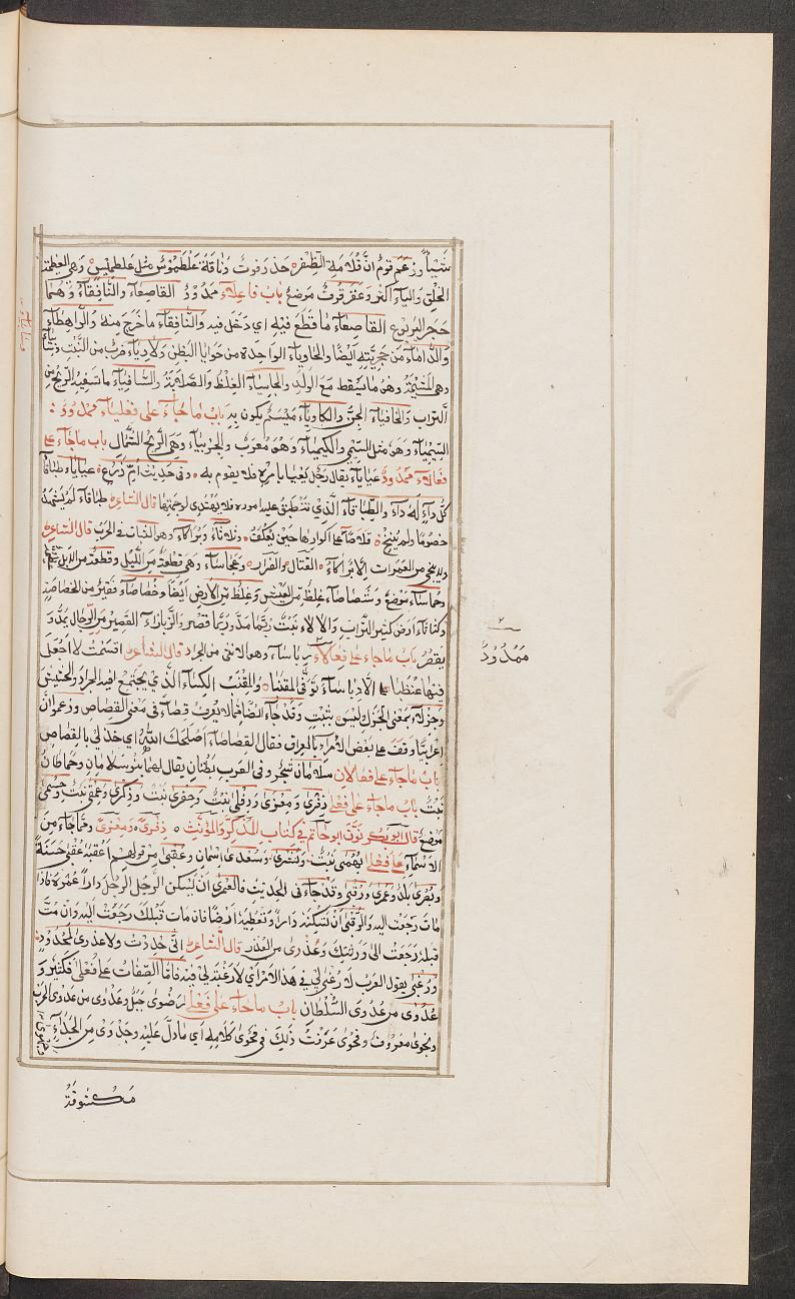 شيئا وزعم قوم ان قلامة الظفر حذرفوت وناقة علطموس مثل علطميس وهي العظيمة
الخلق والباء اكثر وعقرقوت موضع باب فاعلاء ممدود القاصعاء والنافقاء وهما
جحر اليربوع القاصعاء ما قصع فيه اي دخل فيه والنافقاء ما خرج منه والراهطاء
والداماء من جحرته ايضا والحاوياء الواحدة من حوايا البطن ولاوياء ضرب من النبت
وهي المشيمة وهو ما يسقط مع الولد والجاسياء الغلظ والصلابة والسافياء ما تسفيه الريح من
التراب والخافياء الجن والكاوياء ميسم يكون به باب ما جاء على فعلياء ممدود
السيمياء وهو مثل السيمي والكيمياء وهو معرب والجربياء وهي الريح الشمال باب ما جاء على
فعالاء ممدود عياياء يقال رجل يعيا بامره فلا يقوم به وفي حديث ام زرع عياياء طباقاء
كل داء له داء والطباقاء الذي تنطبق عليه اموره فلا يهتدي لوجهتها قال الشاعر طباقاء لم يشهد
خصوما ولم ينخ قلاصا على اكوارها حين تعكف وثلاثاء وبراكاء وهو الثبات في الحرب قال الشاعر
ولا ينجي من الغمرات الا براكاء القتال او الفرار وعجاساء وهي قطعة من الليل وقطعة من الابل
وحماساء موضع وشصاصاء غلظ من العيش وغلظ من الارض ايضا وخصاصاء فقر من الخصاصة
وكثاثاء ارض كثير التراب والالاء نبت ربما مد وربما قصر والزباراء القصير من الرجال يمد و
يقصر باب ما جاء على فعالاء دباساء وهو الانثى من الجراد قال الشاعر اقسمت لا اجعل
فيها عنظبا الا دباساء توفى المقنبا والمقنب الكساء الذي يجتمع فيه الجراد والحشيش
وجزلاء بمعنى الجزل وليس بثبت وقد جاء ايضا فما لا يعرف قصاصاء في معنى القصاص وزعموا ان
اعرابيا وقف على بعض الامراء بالعراق فقال القصاصاء اصلحك الله اي خذ لي بالقصاص
باب ما جاء على فعالان سلامان شجر وفي العرب بطنان يقال لهما بنو سلامان وحماطان
نبت باب ما جاء على فعلى ذفرى ومعزى ودفلى نبت وحفرى نبت وذكرى وعمقى نبت وحسمى
موضع قال ابو بكر نون ابو حاتم في كتاب المذكر والمؤنث ذفرى ومعزى ومما جاء من
الاسماء على فعلى بهمى نبت وبشرى وسعدى اسمان وعقبى من قولهم اعقبه عقبى حسنة
وبصرى بلد وعمرى ورقبى وقد جاء في الحديث فالعمرى ان يسكن الرجل الرجل دارا عمره فاذا
مات رجعت اليه والرقبى ان تسكنه دارا وتعطيه ارضا فان مات قبلك رجعت اليه وان مت
قبله رجعت الى ورثتك وعذرى من العذر قال الشاعر اني حددت ولا عذرى لمحدود
ورغبى يقول العرب لا رغبى لي في هذا الامر اي لا رغبة لي فيه فاما الصفات على فعلى فكثير و
عدوى من عدوى السلطان باب ما جاء على فعلى رضوى جبل وعدوى من عدوى الجرب
ونجوى معروف وفحوى عرفت ذلك في فحوى كلامه اي ما دل عليه وجدوى من الجداء
ممدود